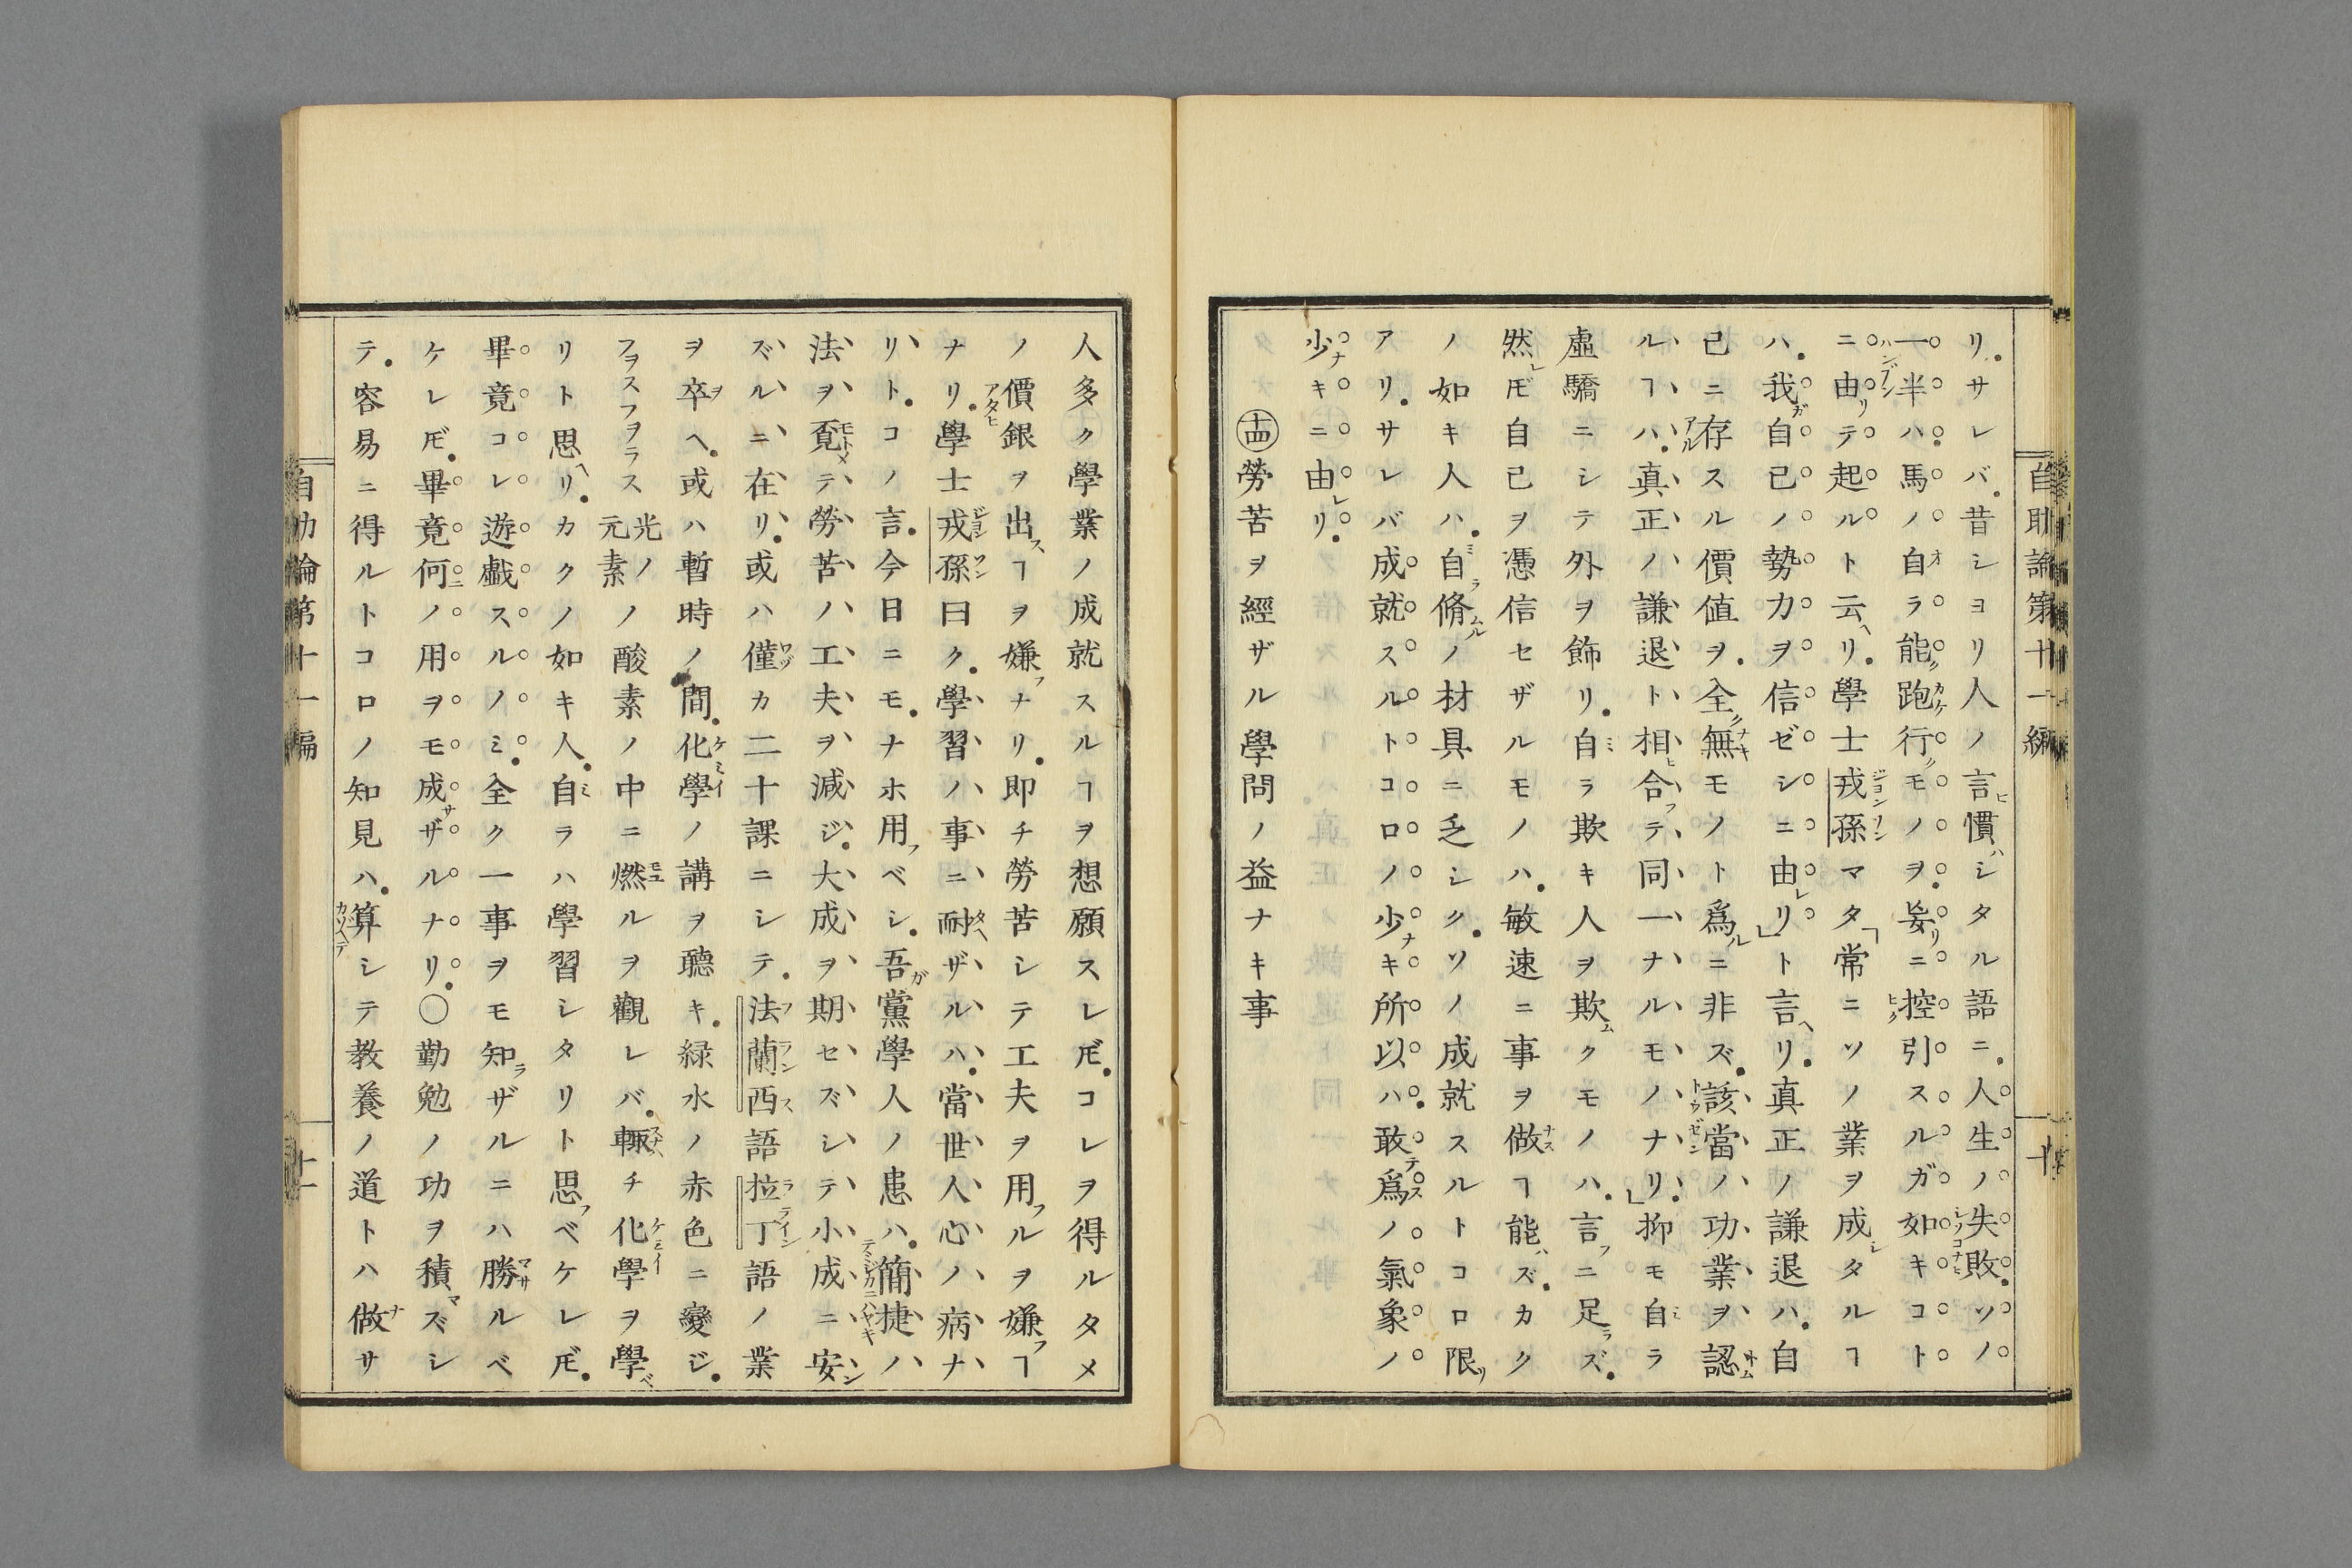 自助論第十一編
十
リ。サレバ。昔シヨリ人ノ言慣シタル語ニ。人生ノ失敗。ソノ
一半ハ。馬ノ自ラ能跑行モノヲ。妄ニ控引スルガ如キコト
ニ由テ起ルト云リ。學士戎孫マタ「常ニソノ業ヲ成タルヿ
ハ。我自己ノ勢力ヲ信ゼシニ由リ」ト言リ。真正ノ謙退ハ。自
己ニ存スル價値ヲ。全無モノト爲ニ非ズ。該當ノ功業ヲ認
ルヿハ。真正ノ謙退ト相合テ同一ナルモノナリ。」抑モ自ラ
虛驕ニシテ外ヲ飾リ。自ラ欺キ人ヲ欺クモノハ。言ニ足ズ。
然𪜈自己ヲ憑信セザルモノハ。敏速ニ事ヲ做ヿ能ズ。カク
ノ如キ人ハ。自脩ノ材具ニ乏シク。ソノ成就スルトコロ限
アリ。サレバ成就スルトコロノ少キ所以ハ。敢爲ノ氣象ノ
少キニ由リ。
㊉四勞苦ヲ經ザル學問ノ益ナキ事
人多ク學業ノ成就スルヿヲ想願スレ𪜈。コレヲ得ルタメ
ノ價銀ヲ出ヿヲ嫌ナリ。即チ勞苦シテ工夫ヲ用ルヲ嫌ヿ
ナリ。學士戎孫曰ク。學習ノ事ニ耐ザルハ。當世人心ノ病ナ
リト。コノ言。今日ニモ。ナホ用ベシ。吾黨學人ノ患ハ。簡捷ノ
法ヲ覔テ勞苦ノ工夫ヲ減ジ。大成ヲ期セズシテ小成ニ安
ズルニ在リ。或ハ僅カ二十課ニシテ。法蘭西語拉丁語ノ業
ヲ卒ヘ。或ハ暫時ノ間。化學ノ講ヲ聽キ。緑水ノ赤色ニ變ジ。
フヲスフヲラス光ノ元素ノ酸素ノ中ニ燃ルヲ觀レバ。輙チ化學ヲ學
リト思リ。カクノ如キ人。自ラハ學習シタリト思ベケレ𪜈。
畢竟コレ遊戲スルノミ。全ク一事ヲモ知ザルニハ勝ルベ
ケレ𪜈。畢竟何ノ用ヲモ成ザルナリ。〇勤勉ノ功ヲ積ズシ
テ。容易ニ得ルトコロノ知見ハ。算シテ教養ノ道トハ做サ
自助論第十一編
十一